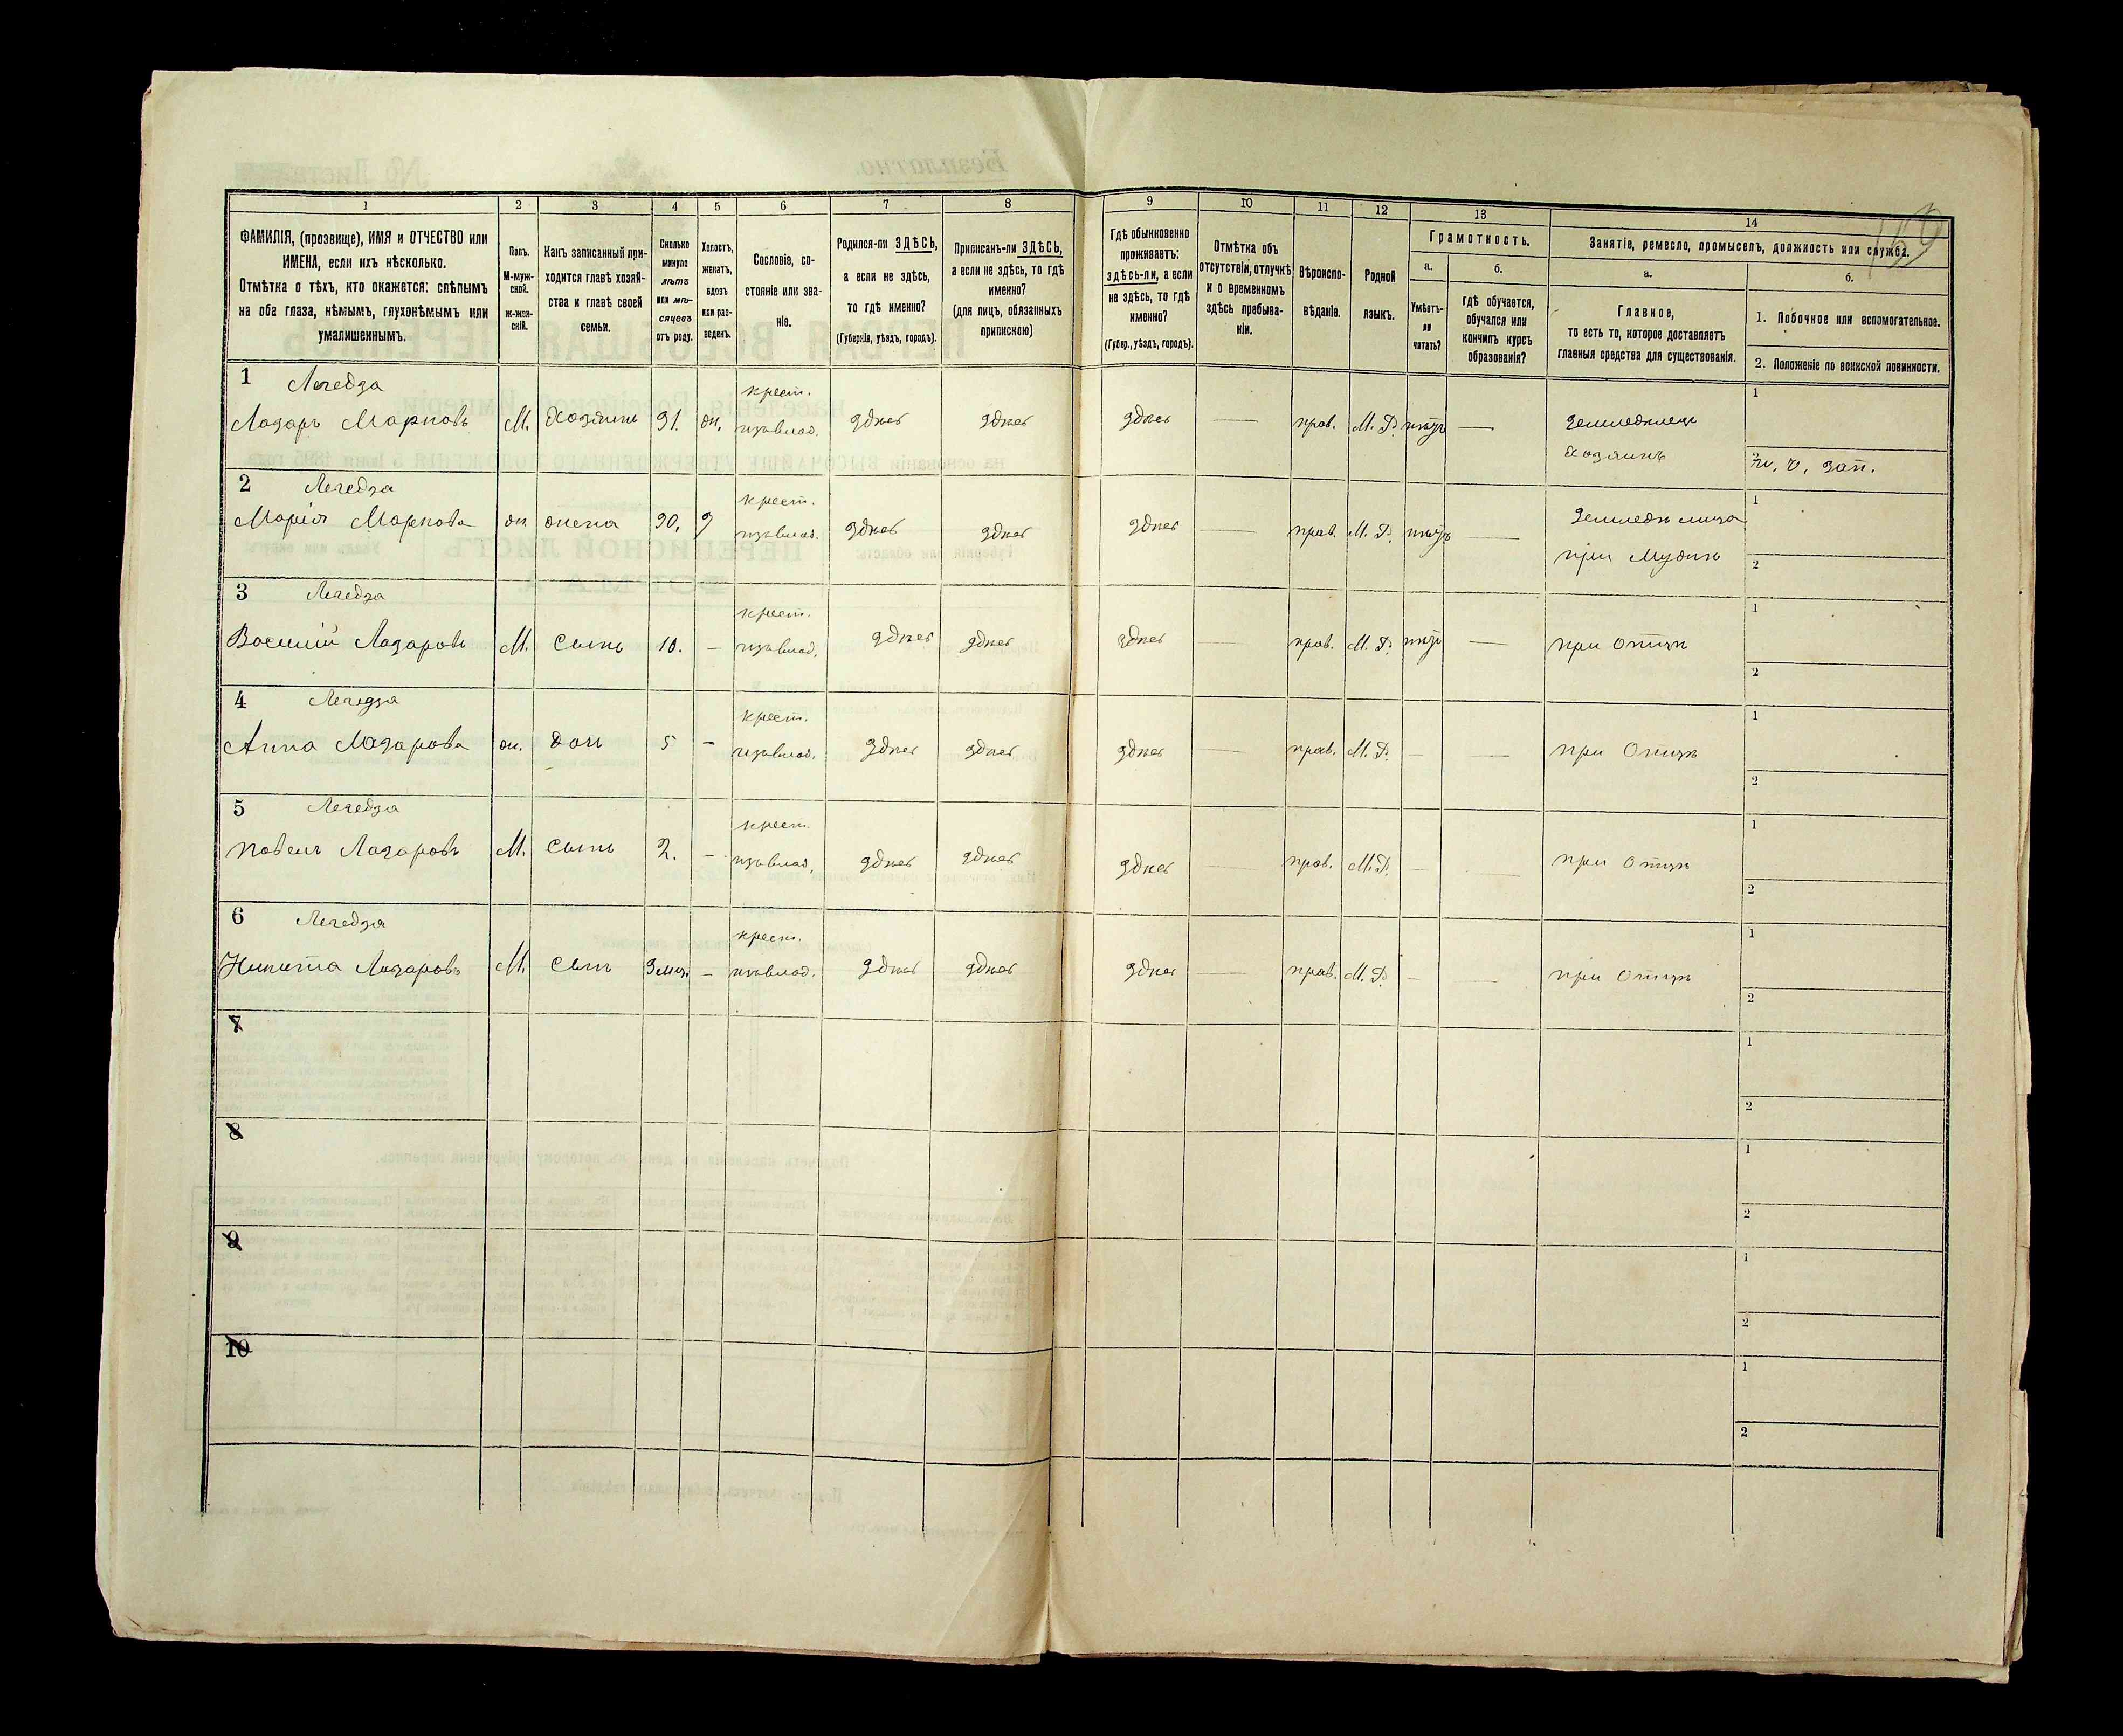 159
1 2 3 4 5 6 7 8 9 10 11 12 13 14
ФАМИЛІЯ, (прозвище), ИМЯ и ОТЧЕСТВО или
ИМЕНА, если ихъ нѣсколько.
Отмѣтка о тѣхъ, кто окажется: слѣпымъ
на оба глаза, нѣмымъ, глухонѣмымъ или
умалишеннымъ.
Полъ.
М-муж-
ской.
ж-жен-
скій.
Какъ записанный при-
ходится главѣ хозяй-
ства и главѣ своей
семьи.
Сколько
минуло
лѣтъ
или мѣ-
сяцевъ
отъ роду.
Холостъ,
женатъ,
вдовъ
или раз-
веденъ.
Сословіе, со-
стояніе или зва-
ніе.
Родился-ли ЗДѢСЬ,
а если не здѣсь,
то гдѣ именно?
(Губернія, уѣздъ, городъ).
Приписанъ-ли ЗДѢСЬ,
а если не здѣсь, то гдѣ
именно?
(для лицъ, обязанныхъ
припискою)
Гдѣ обыкновенно
проживаетъ:
здѣсь-ли, а если
не здѣсь, то гдѣ
именно?
(Губер., уѣздъ, городъ).
Отмѣтка объ
отсутствіи, отлучкѣ
и о временномъ
здѣсь пребыва-
ніи.
Вѣроиспо-
вѣданіе.
Родной
языкъ.
Грамотность.
а.
Умѣетъ-
ли
читать?
б.
гдѣ обучается,
обучался или
кончилъ курсъ
образованія?
Занятіе, ремесло, промыселъ, должность или служба.
а.
Главное,
то есть то, которое доставляетъ
главныя средства для существованія.
б.
1. Побочное или вспомогательное.
2. Положеніе по воинской повинности.
1 Легедза крест. 1
Лазарь Марковъ М. Хозяинъ 31. ж. здѣсь здѣсь здѣсь — прав. М. Р. нѣтъ — Земледѣлецъ
хозяинъ 2
2 Легедза крест. 1
Марія Маркова ж. жена 30. здѣсь здѣсь здѣсь — прав. М. Р. нѣтъ —
при Мужѣ 2
3 Легедза крест. 1
Василій Лазаровъ М. Сынъ 10. — здѣсь здѣсь здѣсь — прав. М. Р. нѣтъ — при Отцѣ
2
4 Легедза крест. 1
Анна Лазарова ж. дочь 5 — здѣсь здѣсь здѣсь — прав. М. Р. — — при Отцѣ
2
5 Легедза крест. 1
Павелъ Лазаровъ М. Сынъ 2. — здѣсь здѣсь здѣсь — прав. М. Р. — — при Отцѣ
2
6 Легедза крест. 1
Никита Лазаровъ М. Сынъ — здѣсь здѣсь здѣсь — прав. М. Р. — — при Отцѣ
2
7 1
2
8 1
2
9 1
2
10 1
2